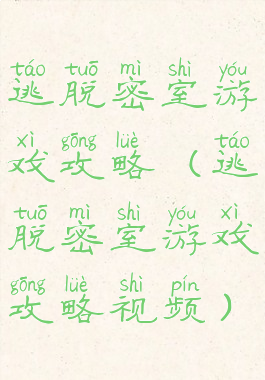 táo tuō mì shì yóu
逃脱密室游
xì gōng lüè táo
戏攻略（逃
tuō mì shì yóu xì
脱密室游戏
gōng lüè shì pín
攻略视频）